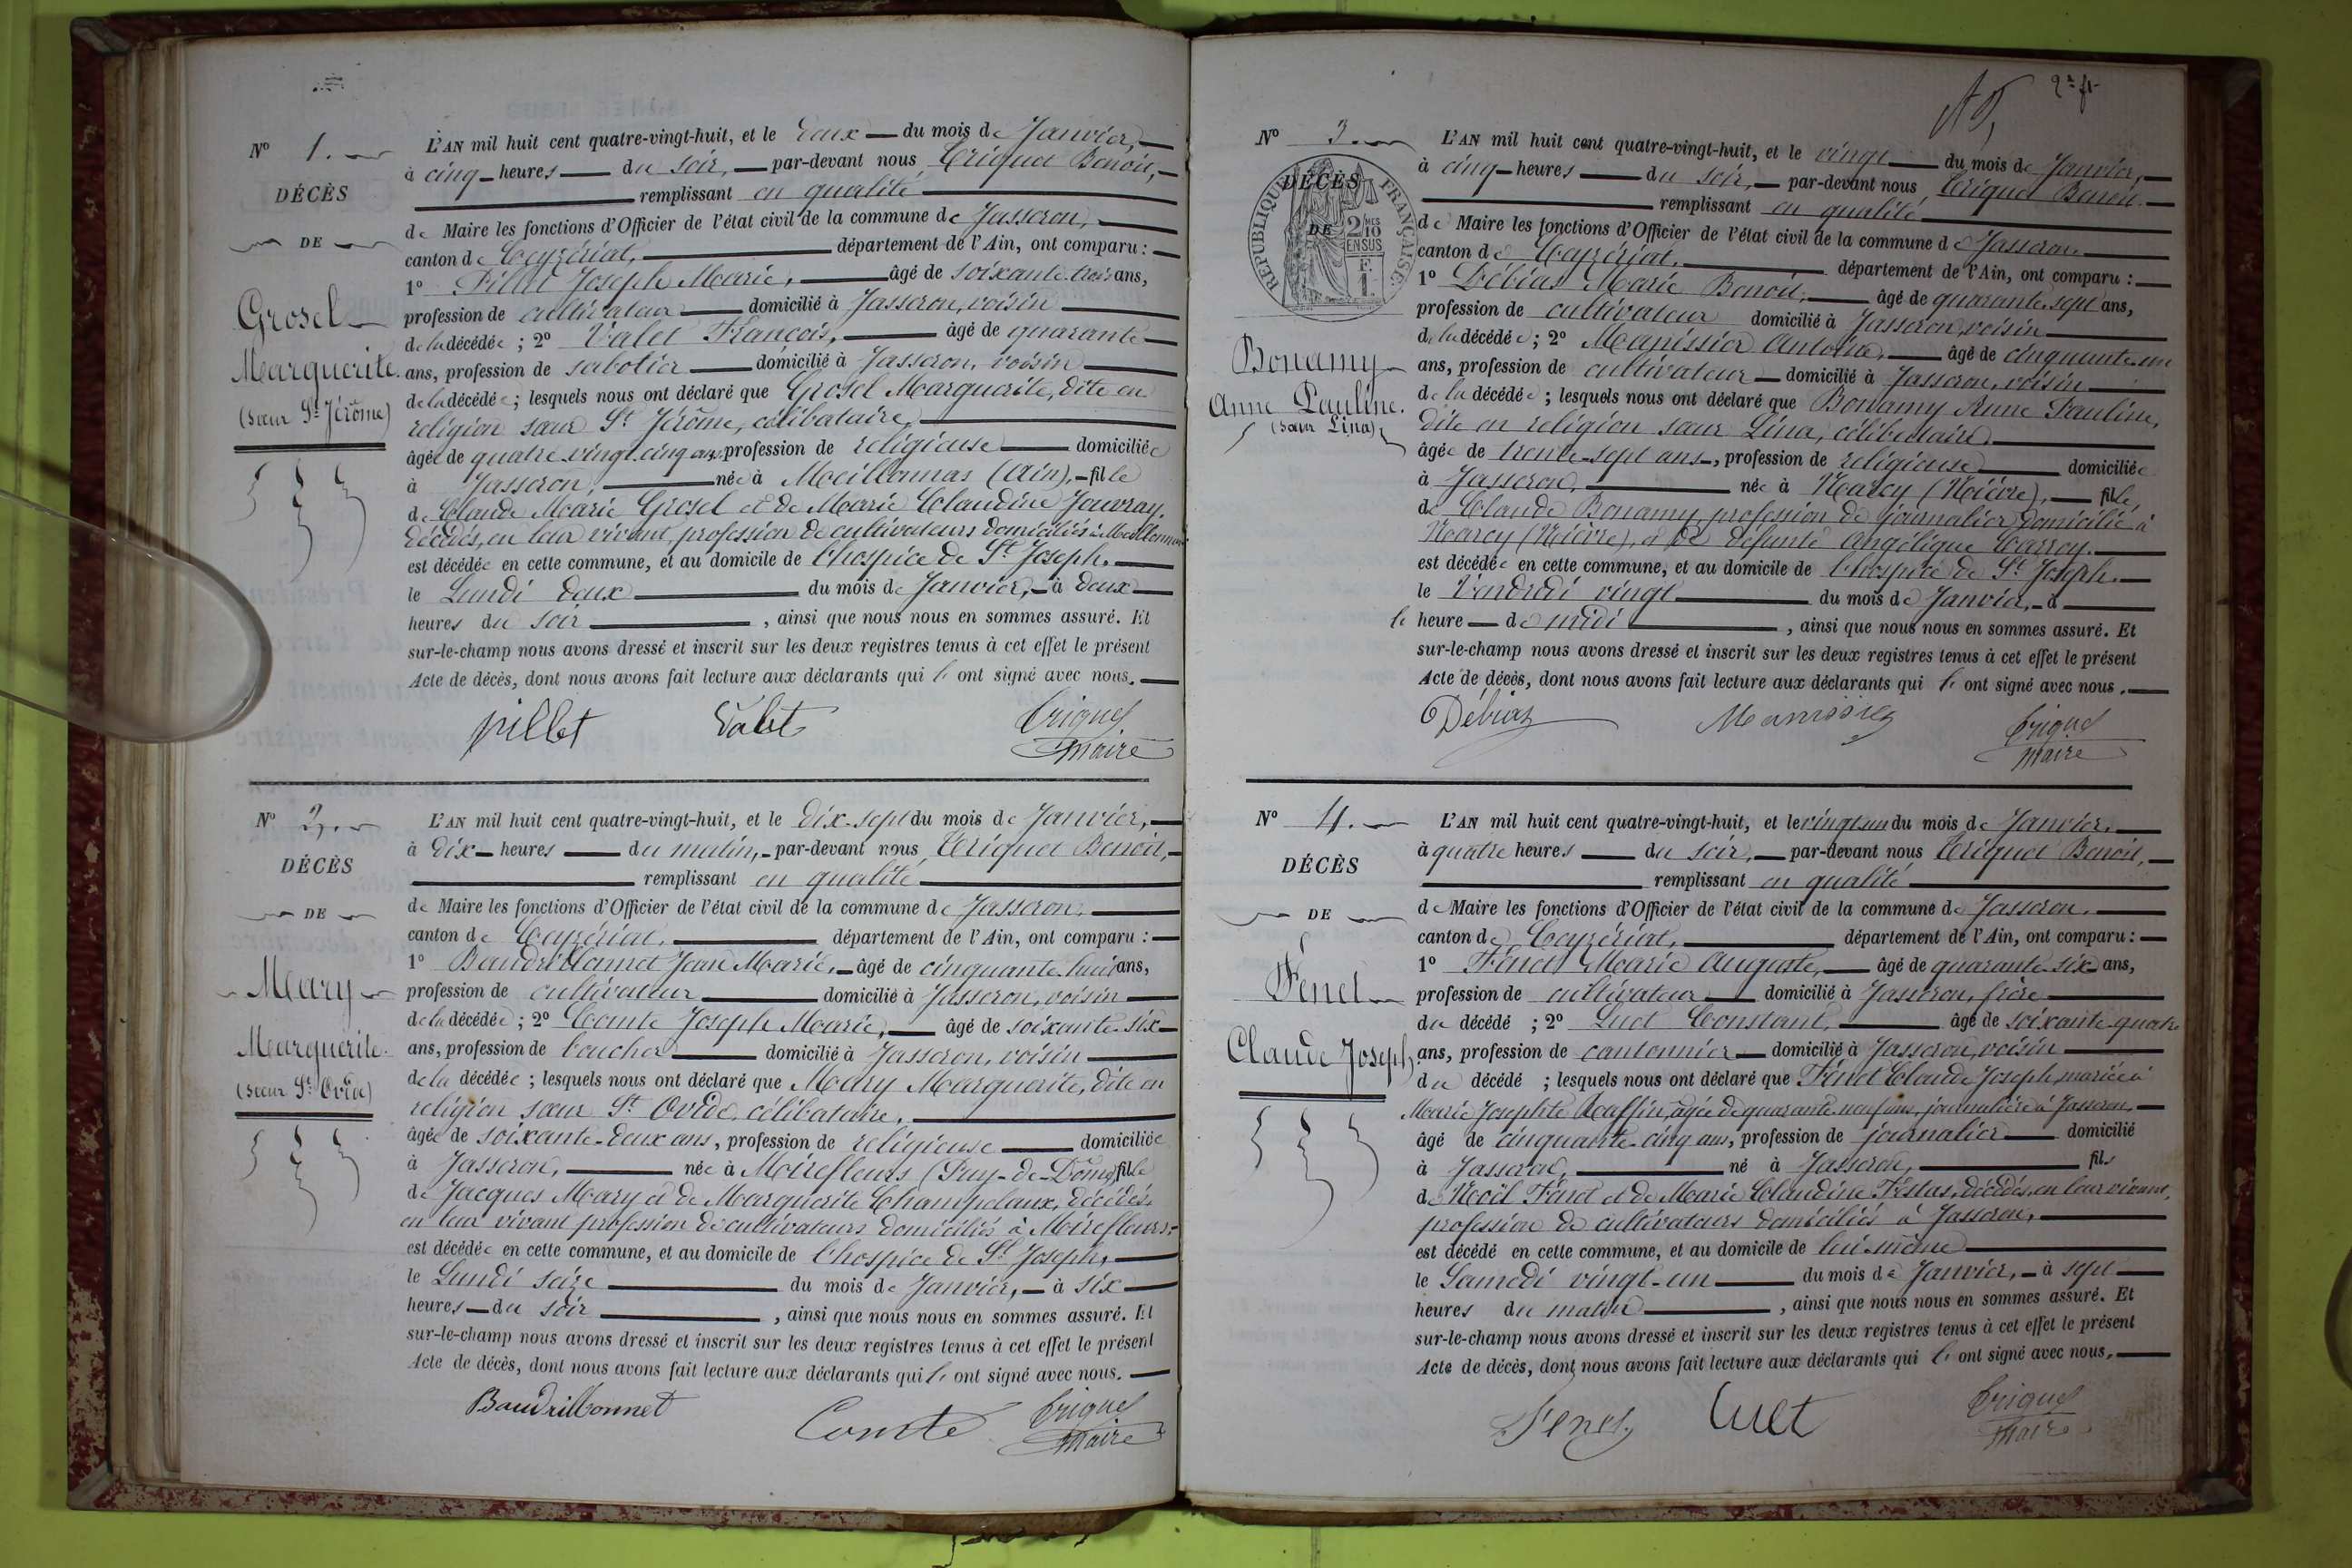 N° 1.
DÉCÈS
DE
Grosel
Marguerite.
(Sœur St Jérôme)
L'AN mil huit cent quatre-vingt-huit, et le deux du mois de Janvier,
à cinq heures du soir, par-devant nous Criquet Benoit,
remplissant en qualité
de Maire les fonctions d'Officier de l'état civil de la commune de Jasseron,
canton de Ceyzériat, département de l'Ain, ont comparu :
1° Pillet Joseph Marie, âgé de soixante-trois ans,
profession de cultivateur domicilié à Jasseron, voisin
de la décédée ; 2° Valet François, âgé de quarante
ans, profession de sabotier domicilié à Jasseron, voisin
de la décédée ; lesquels nous ont déclaré que Grosel Marguerite, dite en
religion sœur St Jérôme, célibataire,
âgée de quatre-vingt-cinq ans, profession de religieuse domiciliée
à Jasseron, née à Meillonnas (Ain), fille
de Claude Marie Grosel et de Marie Claudine Jouvray,
décédés, en leur vivant, profession de cultivateurs domiciliés à Meillonnas
est décédée en cette commune, et au domicile de l'hospice de St Joseph,
le Lundi deux du mois de Janvier, à deux
heures du soir, ainsi que nous nous en sommes assuré. Et
sur-le-champ nous avons dressé et inscrit sur les deux registres tenus à cet effet le présent
Acte de décès, dont nous avons fait lecture aux déclarants qui l' ont signé avec nous.
pillet Valet Criquet
Maire
N° 2.
DÉCÈS
DE
Mary
Marguerite.
(Sœur St Ovide)
L'AN mil huit cent quatre-vingt-huit, et le dix-sept du mois de Janvier,
à dix heures du matin, par-devant nous Criquet Benoit,
remplissant en qualité
de Maire les fonctions d'Officier de l'état civil de la commune de Jasseron,
canton de Ceyzériat, département de l'Ain, ont comparu :
1° Baudrillonnet Jean Marie, âgé de cinquante-huit ans,
profession de cultivateur domicilié à Jasseron, voisin
de la décédée ; 2° Comte Joseph Marie, âgé de soixante-six
ans, profession de boucher domicilié à Jasseron, voisin
de la décédée ; lesquels nous ont déclaré que Mary Marguerite, dite en
religion sœur St Ovide, célibataire,
âgée de soixante-deux ans, profession de religieuse domiciliée
à Jasseron, née à Mirefleurs (Puy-de-Dôme) fille
de Jacques Mary et de Marguerite Champelaux, décédés,
en leur vivant profession de cultivateurs domiciliés à Mirefleurs,
est décédée en cette commune, et au domicile de l'hospice de St Joseph,
le Lundi seize du mois de Janvier, à six
heures du soir, ainsi que nous nous en sommes assuré. Et
sur-le-champ nous avons dressé et inscrit sur les deux registres tenus à cet effet le présent
Acte de décès, dont nous avons fait lecture aux déclarants qui l' ont signé avec nous.
Baudrillonnet Comte Criquet
Maire
N° 3.
DÉCÈS
DE
RÉPUBLIQUE FRANÇAISE
2 MES
10
EN SUS
F.
1.
Bonamy
Anne Pauline.
(Sœur Lina)
L'AN mil huit cent quatre-vingt-huit, et le vingt du mois de Janvier,
à cinq heures du soir, par-devant nous Criquet Benoit
remplissant en qualité
de Maire les fonctions d'Officier de l'état civil de la commune de Jasseron
canton de Ceyzériat, département de l'Ain, ont comparu :
1° Débias Marie Benoit, âgé de quarante-sept ans,
profession de cultivateur domicilié à Jasseron, voisin
de la décédée ; 2° Manissier Antoine, âgé de cinquante-un
ans, profession de cultivateur domicilié à Jasseron, voisin
de la décédée ; lesquels nous ont déclaré que Bonamy Anne Pauline,
dite en religion sœur Lina, célibataire
âgée de trente-sept ans, profession de religieuse domiciliée
à Jasseron, née à Narcy (Nièvre), fille
de Claude Bonamy profession de journalier domicilié à
Narcy (Nièvre), et de défunte Angélique Carroy.
est décédée en cette commune, et au domicile de l'hospice de St Joseph.
le Vendredi vingt du mois de Janvier, à
l' heure de midi, ainsi que nous nous en sommes assuré. Et
sur-le-champ nous avons dressé et inscrit sur les deux registres tenus à cet effet le présent
Acte de décès, dont nous avons fait lecture aux déclarants qui l' ont signé avec nous.
Débias Manissier Criquet
Maire
N° 4.
DÉCÈS
DE
Fénet
Claude Joseph.
L'AN mil huit cent quatre-vingt-huit, et le vingt un du mois de Janvier,
à quatre heures du soir, par-devant nous Criquet Benoit,
remplissant en qualité
de Maire les fonctions d'Officier de l'état civil de la commune de Jasseron,
canton de Ceyzériat, département de l'Ain, ont comparu :
1° Fénet Marie Auguste, âgé de quarante-six ans,
profession de cultivateur domicilié à Jasseron, frère
du décédé ; 2° Luct Constant, âgé de soixante-quatre
ans, profession de cantonnier domicilié à Jasseron, voisin
du décédé ; lesquels nous ont déclaré que Fénet Claude Joseph, marié à
Marie Josephte Raffin, âgée de quarante-neuf ans, journalière à Jasseron,
âgé de cinquante-cinq ans, profession de journalier domicilié
à Jasseron, né à Jasseron, fils
de Noël Fénet et de Marie Claudine Festas, décédés, en leur vivant,
profession de cultivateurs domiciliés à Jasseron,
est décédé en cette commune, et au domicile de lui-même
le Samedi vingt-un du mois de Janvier, à sept
heures du matin, ainsi que nous nous en sommes assuré. Et
sur-le-champ nous avons dressé et inscrit sur les deux registres tenus à cet effet le présent
Acte de décès, dont nous avons fait lecture aux déclarants qui l' ont signé avec nous.
Fenet Luct Criquet
Maire